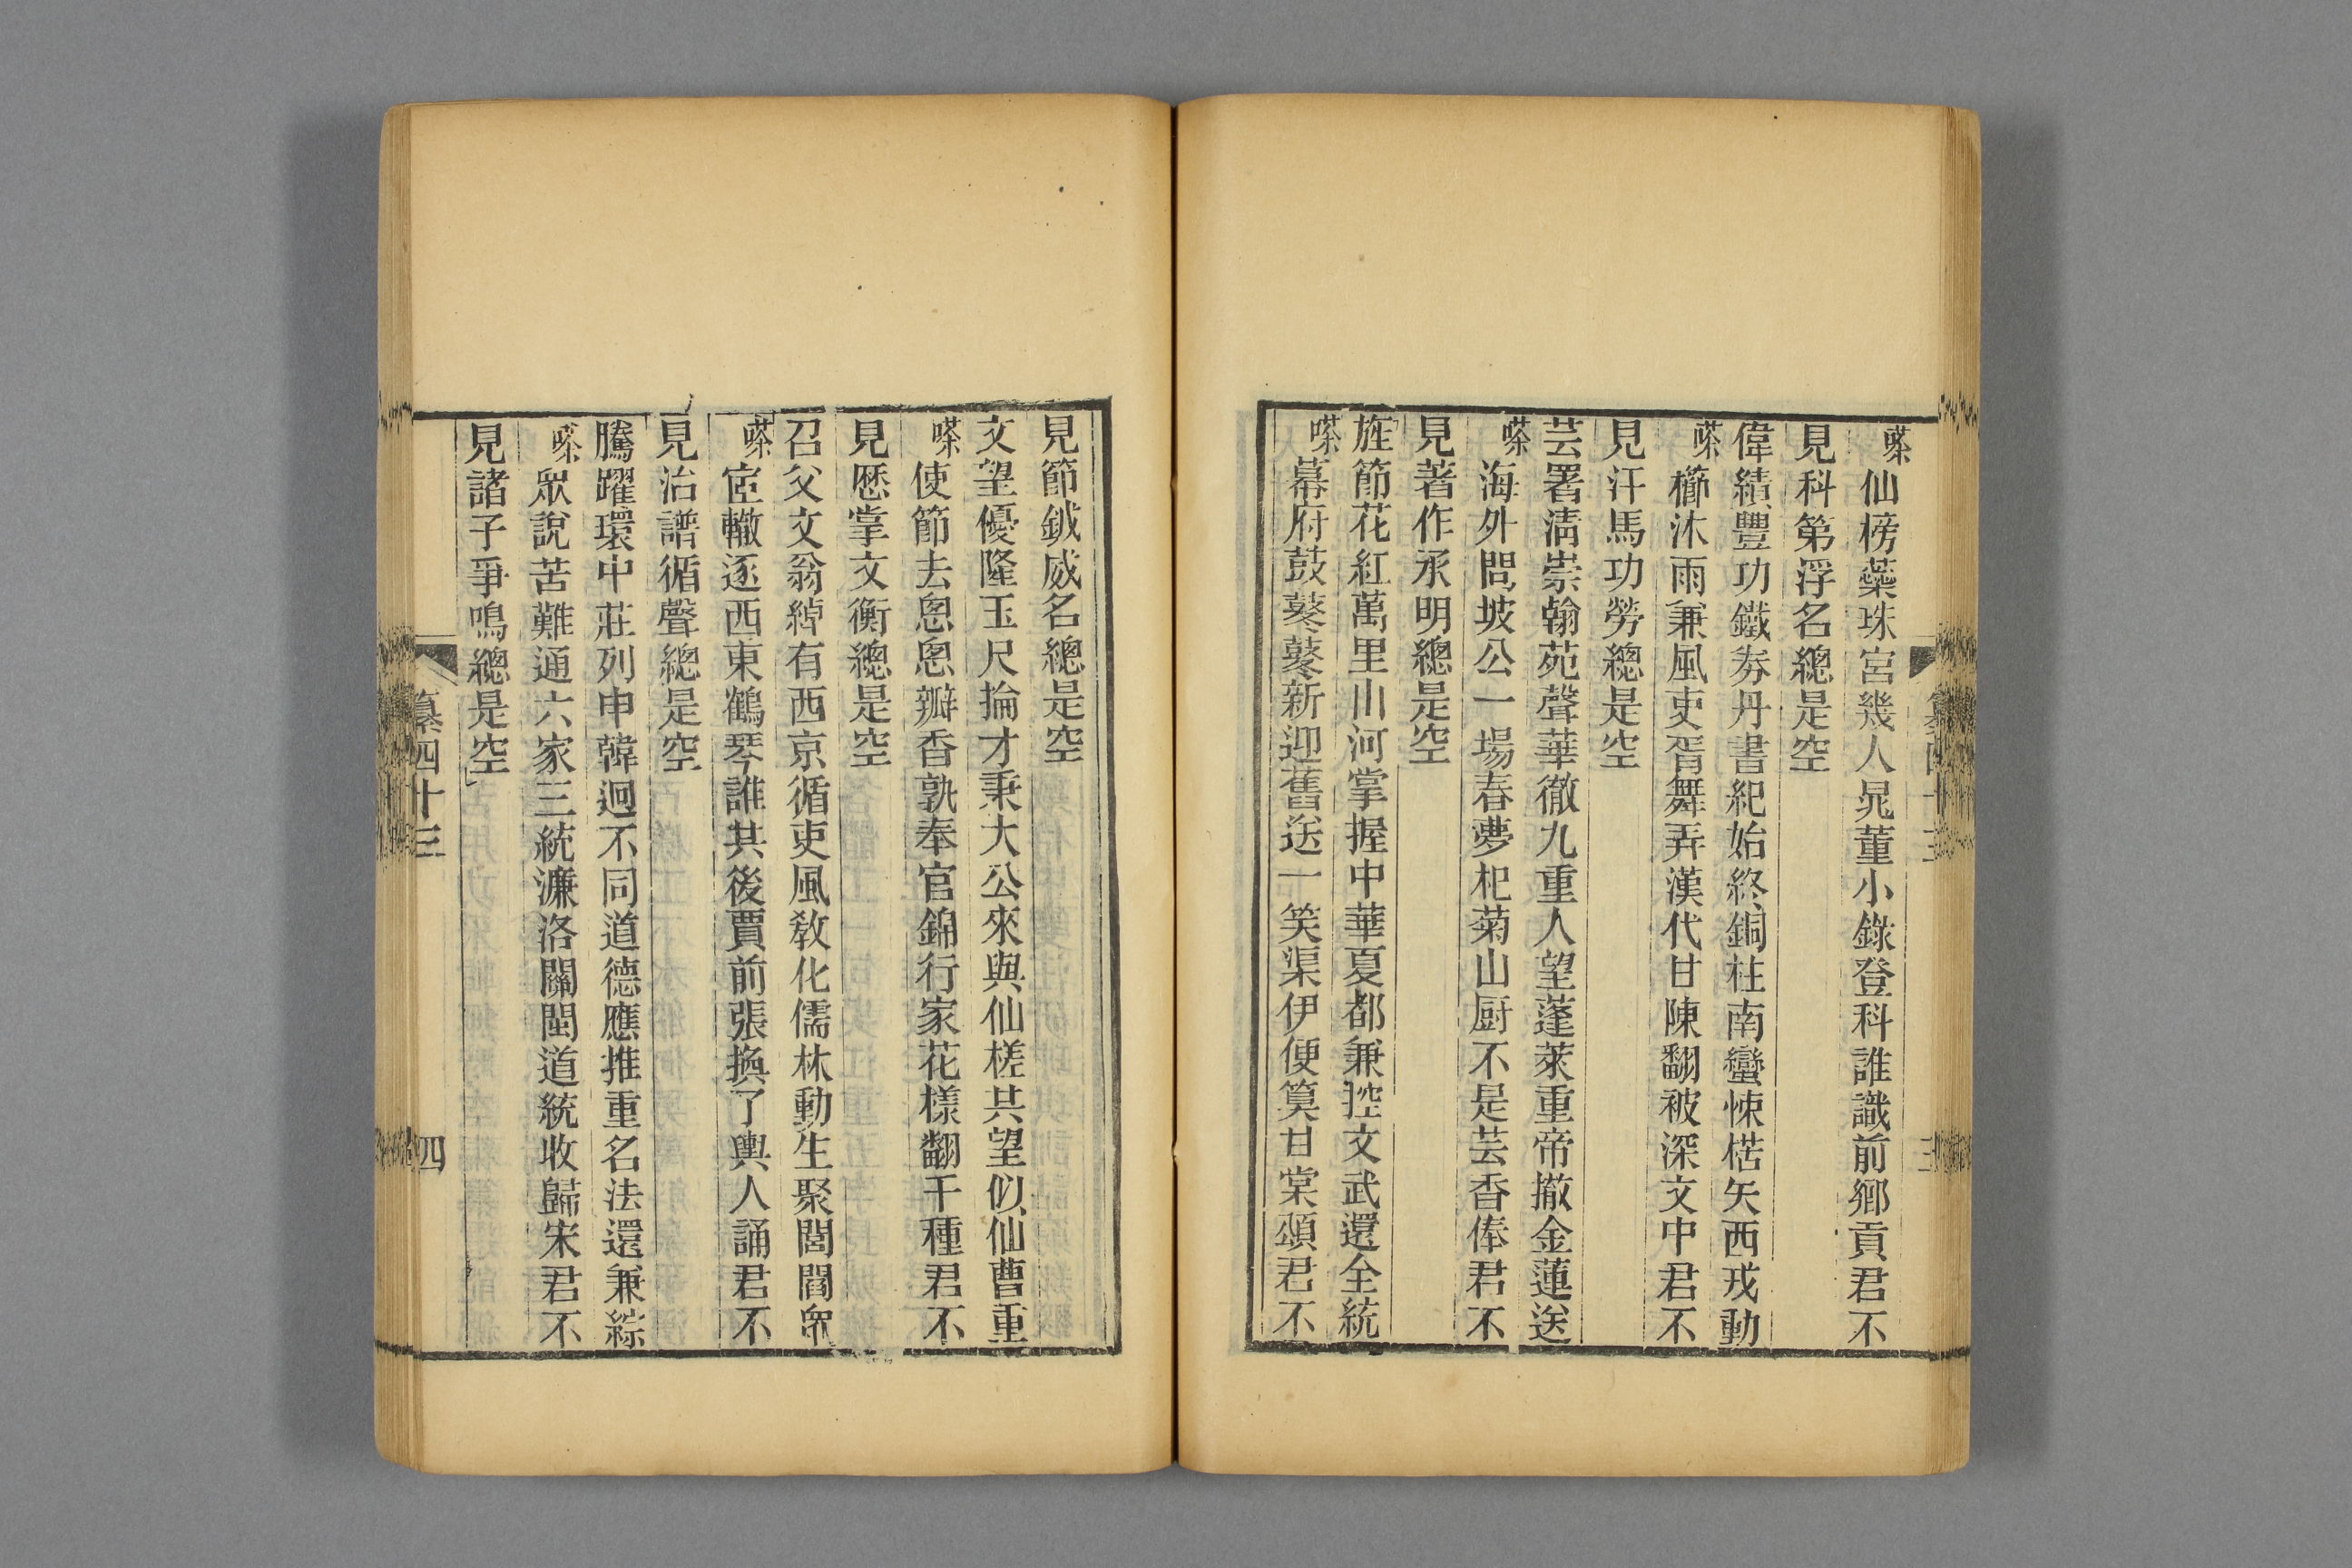 嗏仙榜蘂珠宮幾人晁董小錄登科誰識前鄉貢君不
見科第浮名總是空
偉績豐功鐵券丹書紀始終銅柱南蠻悚楛矢西戎動
嗏櫛沐雨兼風吏胥舞弄漢代甘陳翻被深文中君不
見汗馬功勞總是空
芸署淸崇翰苑聲華徹九重人望蓬萊重帝撤金蓮送
嗏海外問坡公一場春夢杞菊山厨不是芸香俸君不
見著作承明總是空
旌節花紅萬里山河掌握中華夏都兼控文武還全統
嗏幕府鼓鼕鼕新迎舊送一笑渠伊便算甘棠頌君不
纂四十三
三
見節鉞威名總是空
文望優隆玉尺掄才秉大公來與仙槎共望似仙曹重
嗏使節去悤悤瓣香孰奉官錦行家花樣翻千種君不
見歷掌文衡總是空
召父文翁綽有西京循吏風敎化儒林動生聚閭閻衆
嗏宦轍逐西東鶴琴誰其後賈前張換了輿人誦君不
見治譜循聲總是空
騰躍環中莊列申韓迥不同道德應推重名法還兼綜
嗏眾說苦難通六家三統濂洛關閩道統收歸宋君不
見諸子爭鳴總是空
纂四十三
四